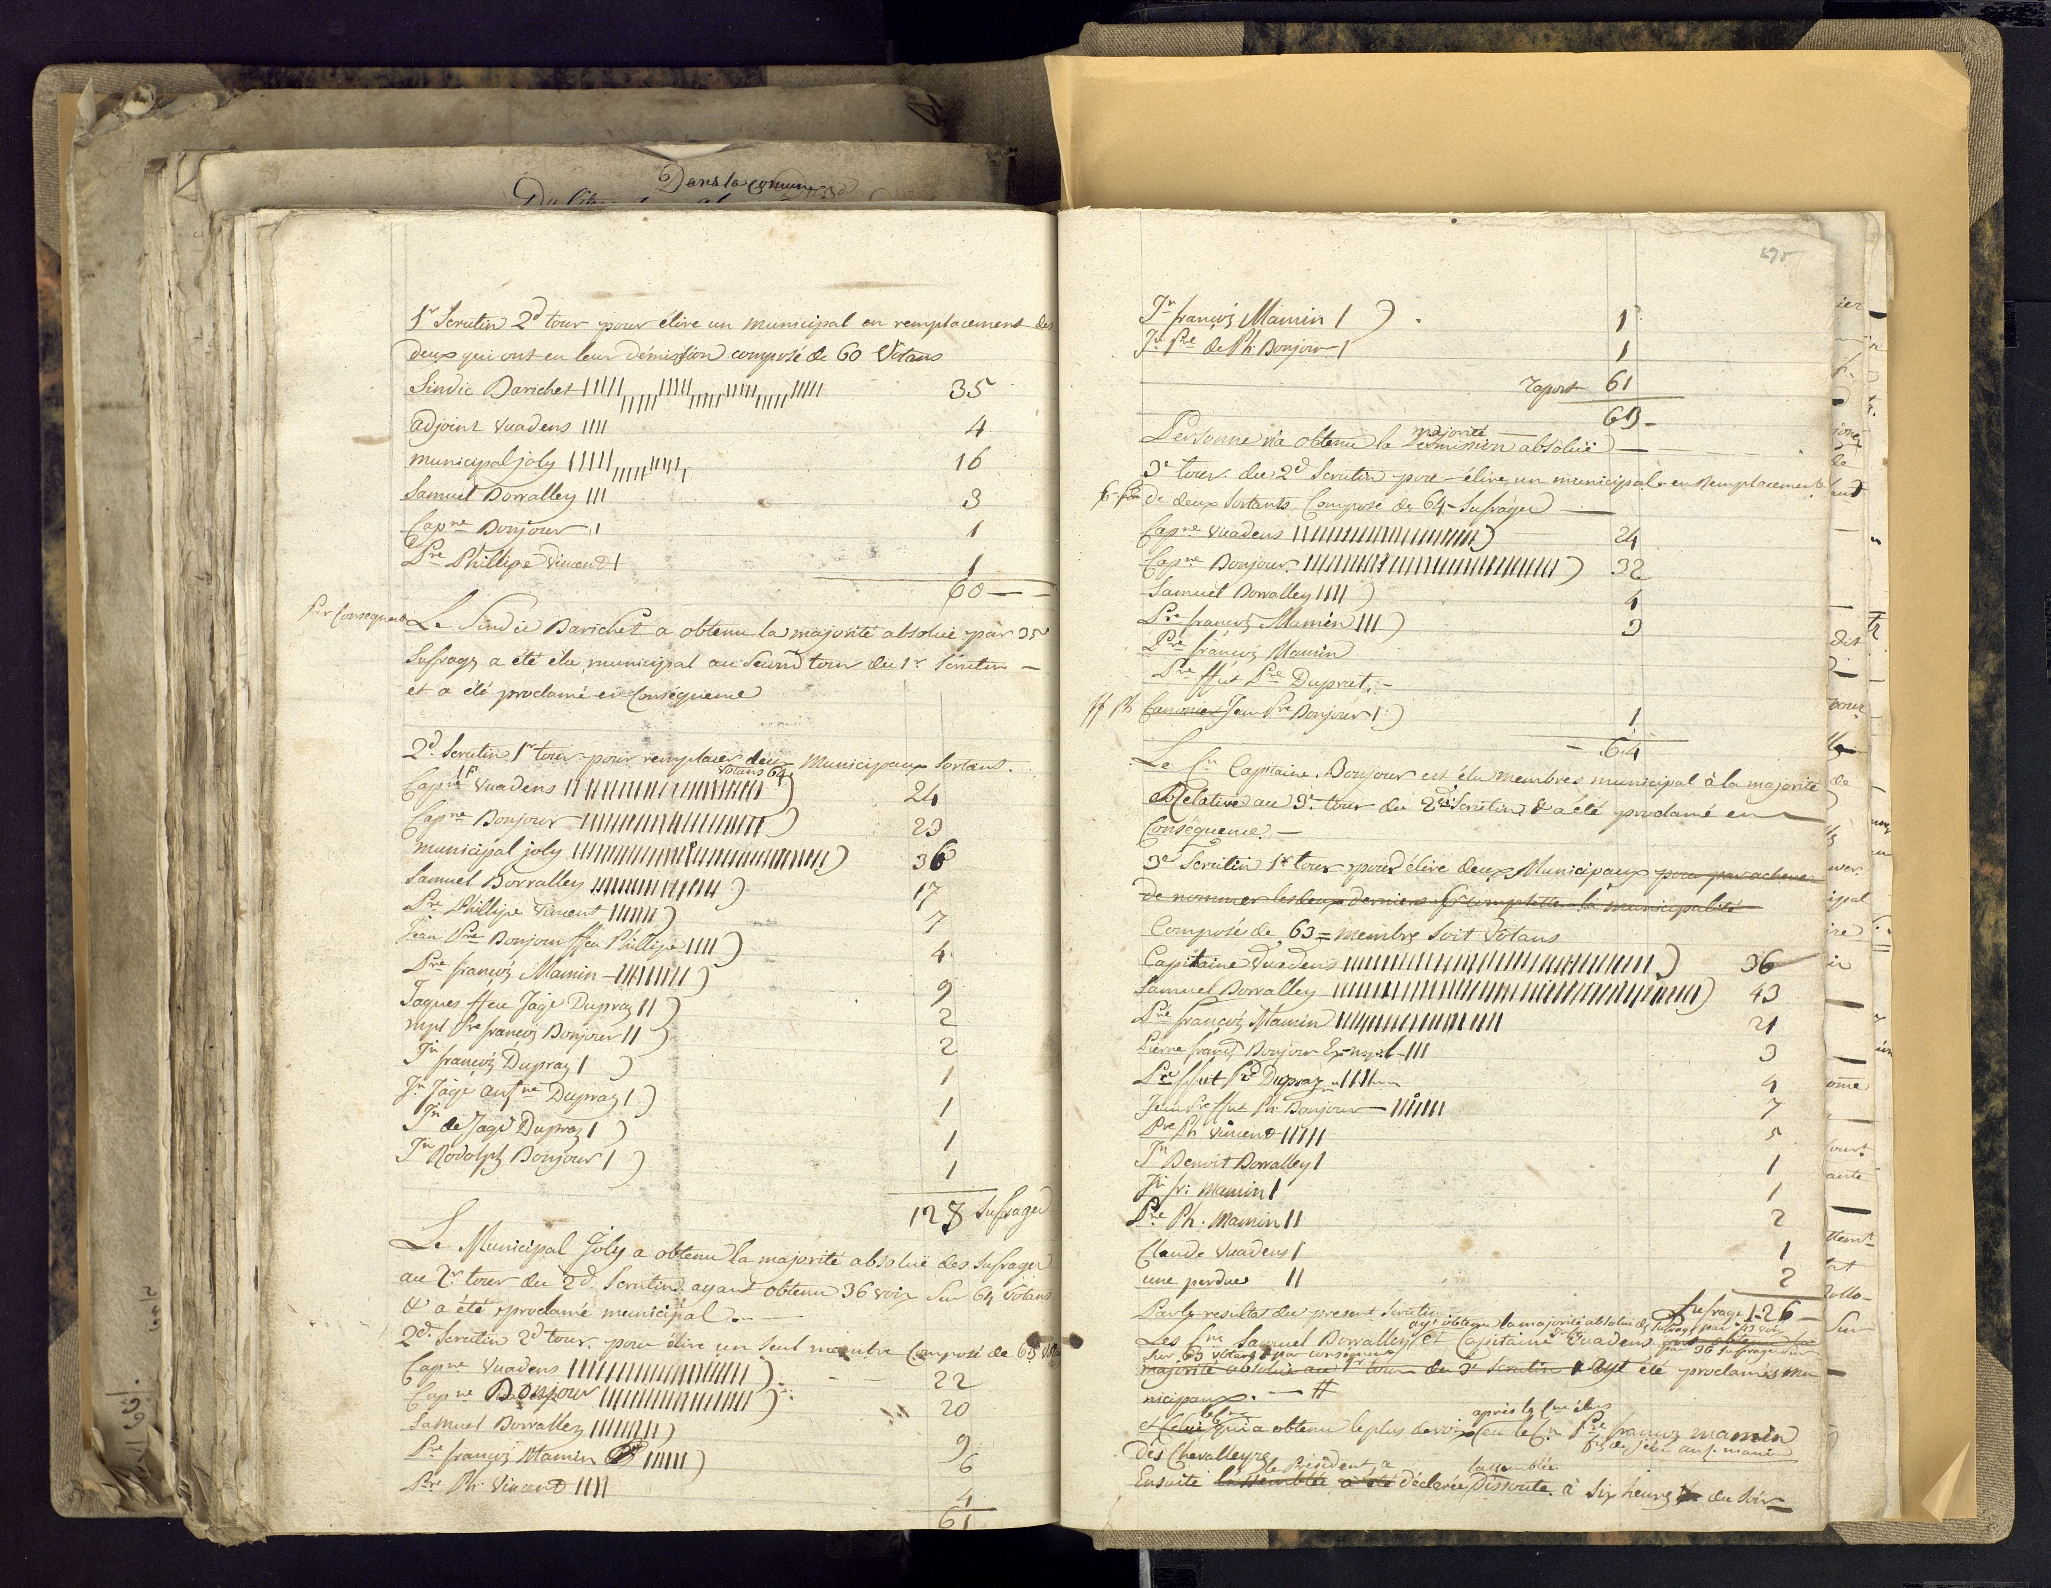 Dans la commune
1r Scrutin 2d tour pour élire un municipal en remplacement des
deux qui ont eu leur démission composé de 60 Votans
Sindic Barichet 35
adjoint Vuadens 4
municipal joly 16
Samuel Borralley 3
Capne Bonjour 1
Pre Phillipe Vincend 1
60
Par Consequent Le Sindic Barichet a obtenu la majorité absolue par 35
Sufrages a été élu municipal au Second tour du 1r Scrutin
et a été proclamé en Conséquence
2d Scrutin 1r tour pour remplacer deux Municipaux Sortans.
votans 64
Capne Vuadens 24
Capne Bonjour 23
municipal joly 36
Samuel Borralley 17
Pre Phillipe Vincent 7
Jean Pre Bonjour ffeu Phillipe 4
Pre françois Mamin 9
Jaques ffeu Jaqe Dupraz 2
mpl Pre françois Bonjour 2
Jn françois Dupraz 1
Jn Jaqe antne Dupraz 1
Jn de Jaqe Dupraz 1
Jn Rodolph Bonjour 1
128 Sufrages
Le Municipal Joly a obtenu la majorité absolue des Sufrages
au 1r tour du 2d Scrutin ayant obtenu 36 voix Sur 64 Votans
& a été proclamé municipal.
2d Scrutin 2d tour pour élire un Seul membre Composé de 63
Capne Vuadens 22
Capne Bonjour 20
Samuel Borralley 9
Pre françois Mamin 6
Pre Ph: Vincend 4
61
Jn françois Mamin 1
Jn Pre de Ph: Bonjour 1
raport 61
63
majorité
Personne n'a obtenu la démission absolue
3e tour du 2d Scrutin pour élire un municipal en Remplacement
de deux Sortants Composé de 64 Sufrages
Capne Vuadens 24
Capne Bonjour 32
Samuel Borralley 4
Pre françois Mamin 3
Pre françois Mamin
Pre ffut Pre Dupraz
ff Ph Jean Pre Bonjour 1
64
Le Cn Capitaine Bonjour est élu membres municipal à la majorité
Relative au 3e tour du 2d Scrutin & a été proclamé en
Conséquence.
3e Scrutin 1r tour pour élire deux Municipaux pour parachever
de nommer les deux derniers completter la municipalité
Composé de 63 = membre Soit Votans
Capitaine Vuadens 36
Samuel Borralley 43
Pre françois Mamin 21
Pierre franç Bonjour Ex-mpl 3
Pre ffut Pre Dupraz 4
Jean Pre ffut Ph: Bonjour 7
Pre Ph Vincend 5
Jn Benoit Borralley 1
Jn fr: Mamin 1
Pre Ph: Mamin 2
Claude Vuadens 1
une perdue 2
Sufrage 126
Par le resultat du present Scrutin
ayt obtenu la majorité absolue
Les Cns Samuel Borralley et Capitaine Vuadens
Sur 63 votans & par consequent par 36 Sufrages
majorité absolue au 1r tour du 3e Scrutin Ayt été proclamés mu
nicipaux. #
après les Cns élus
et Celui qui a obtenu le plus de voix est le Cn Pre françois mamin
des Chevalleyres
le Président a l'assemblée
Ensuite l'assemblée a été déclarée Dissoute à Six heures du Soir